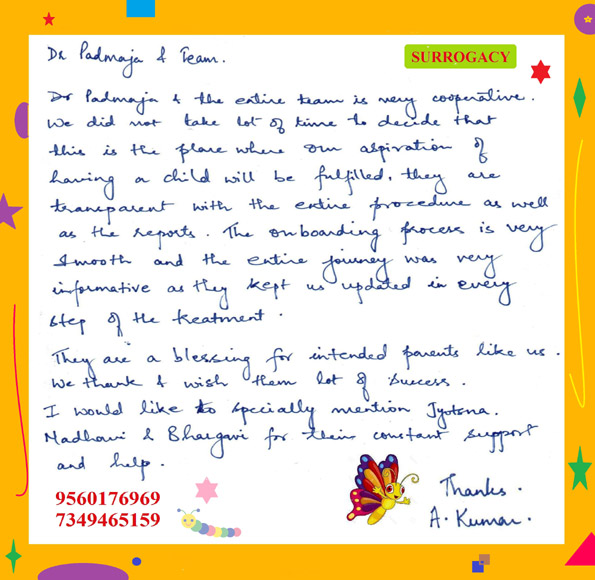 Dr Padmaja & Team.
SURROGACY
Dr Padmaja & the entire team is very cooperative.
We did not take lot of time to decide that
this is the place where our aspiration of
having a child will be fulfilled. they are
transparent with the entire procedure as well
as the reports. The onboarding process is very
smooth and the entire journey was very
informative as they kept us updated in every
step of the treatment.
They are a blessing for intended parents like us.
We thank & wish them lot of success.
I would like to specially mention Jyotsna.
Madhavi & Bhargavi for their constant support
and help.
9560176969
7349465159
Thanks.
A. Kumar.